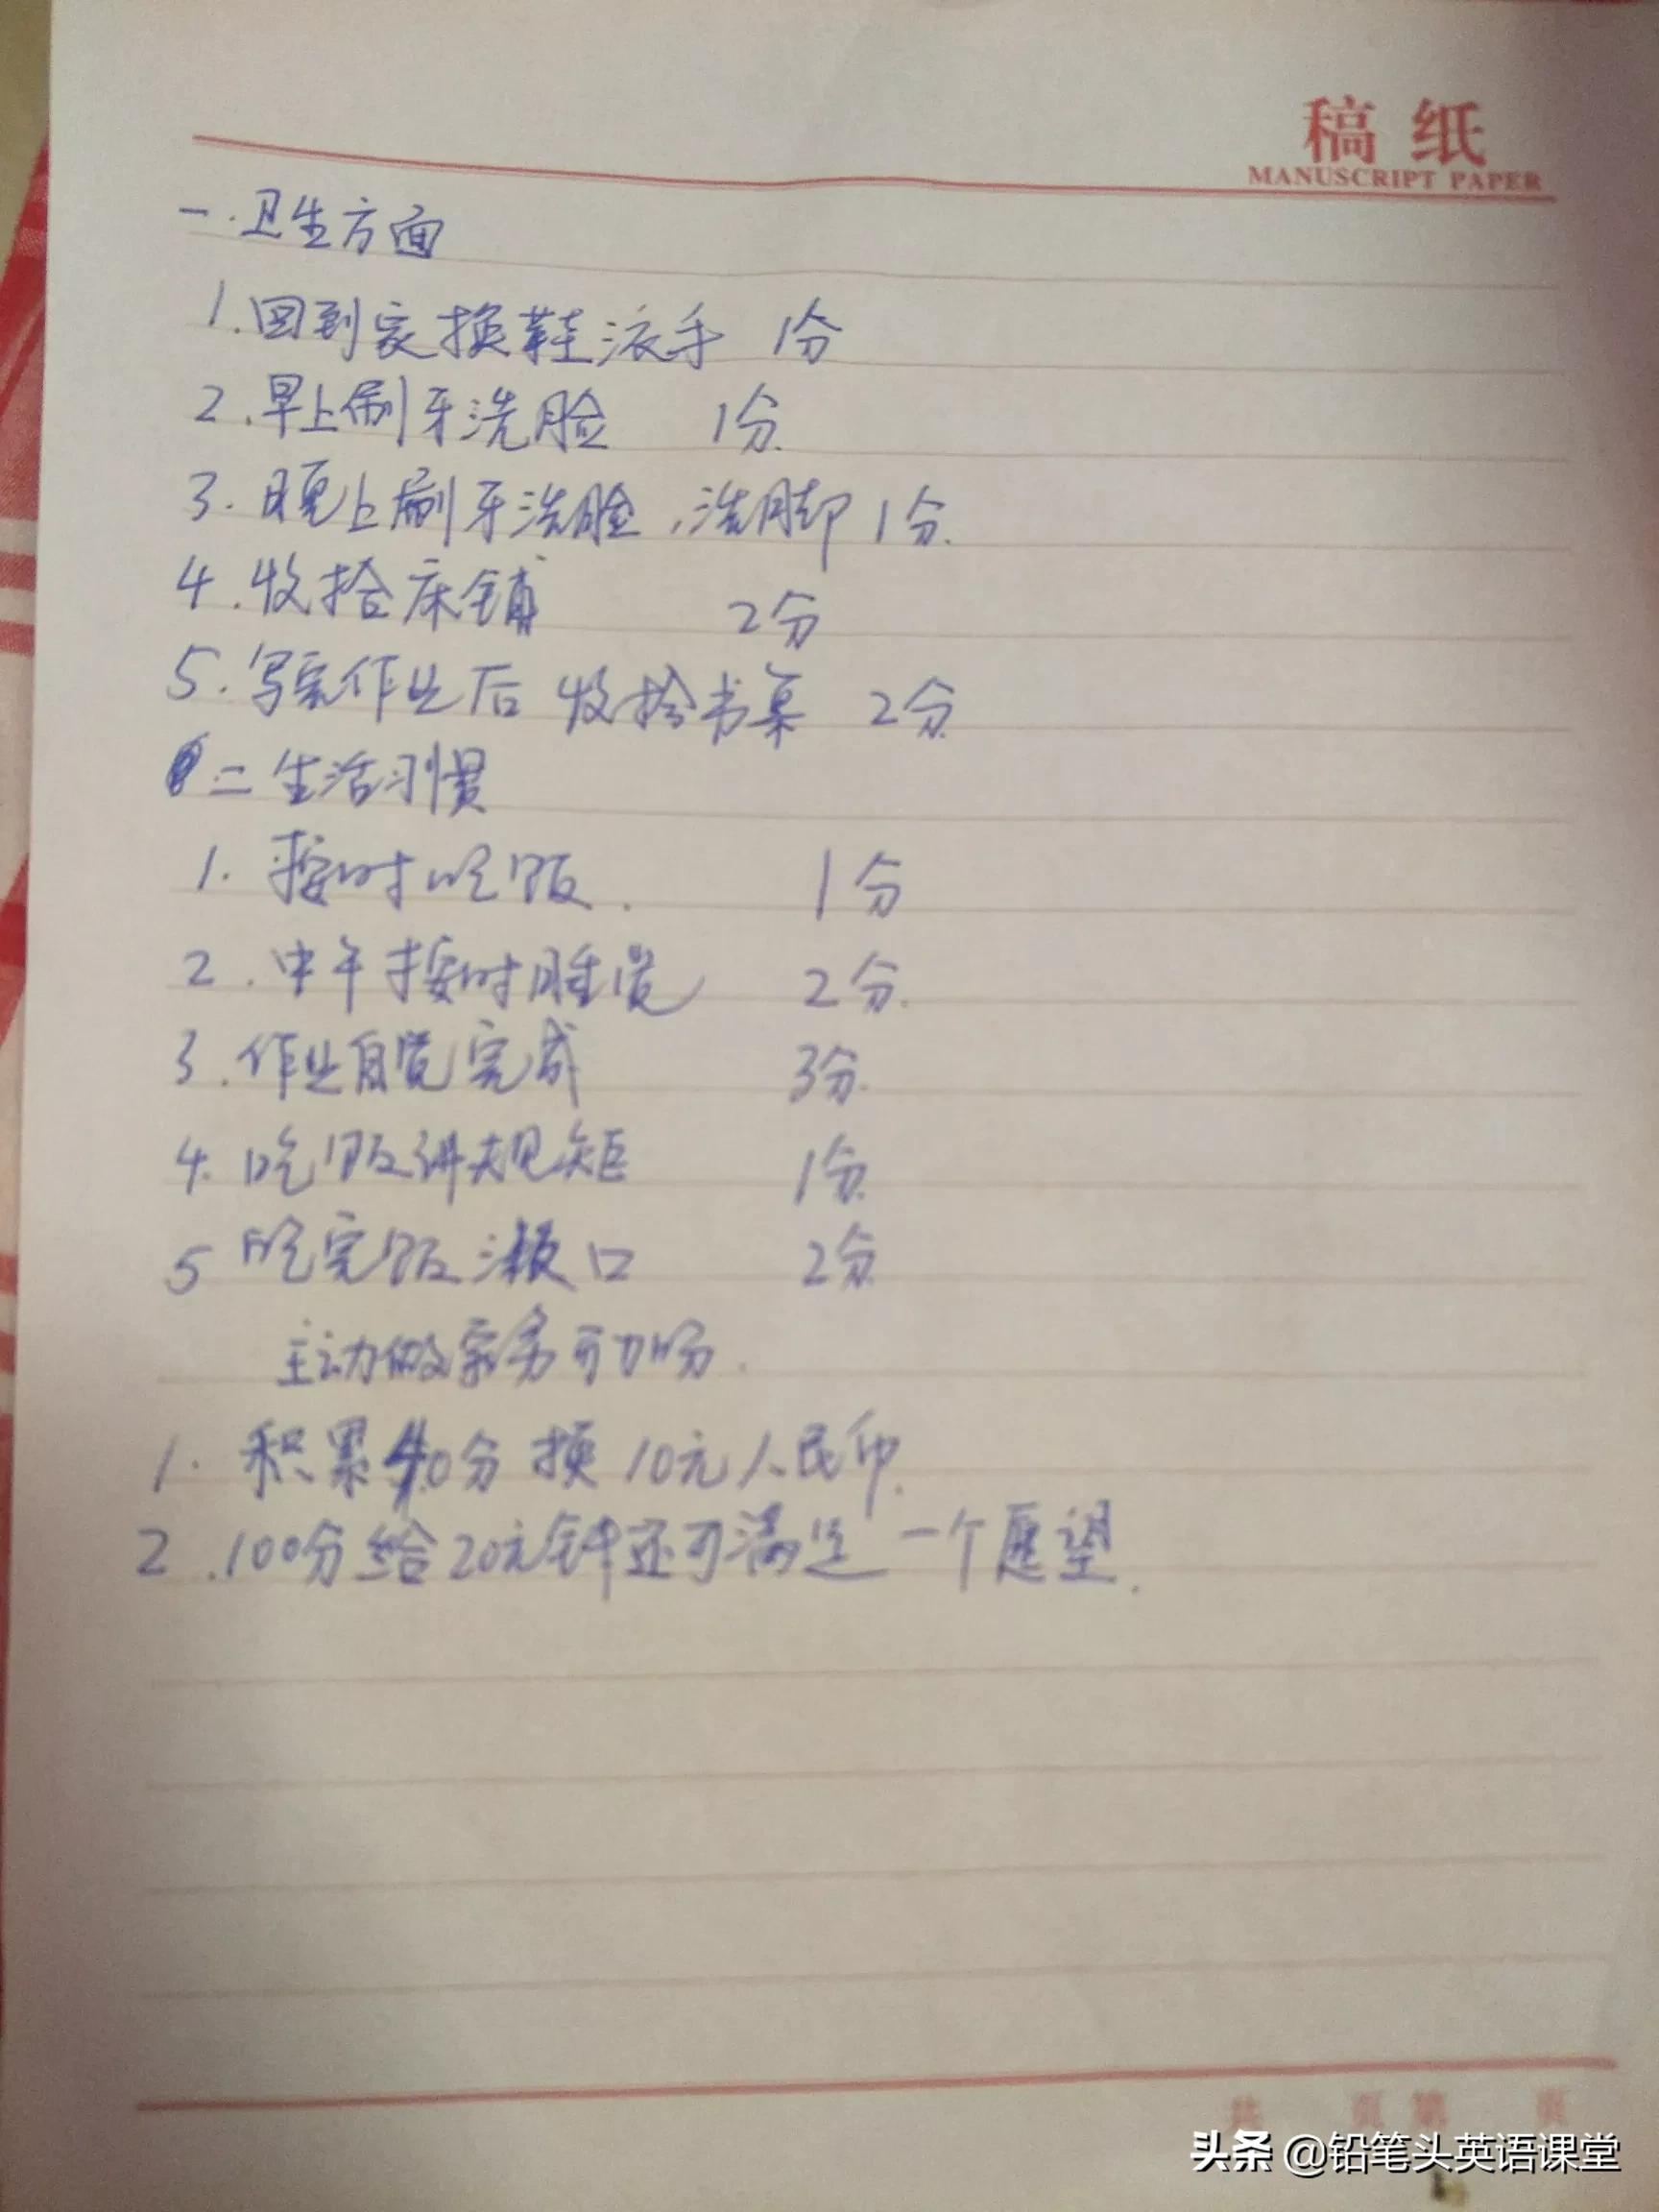 稿纸
MANUSCRIPT PAPER
一.卫生方面
1.回到家换鞋洗手 1分
2.早上刷牙洗脸 1分.
3.晚上刷牙洗脸,洗脚 1分.
4.收拾床铺 2分
5.写完作业后 收拾书桌 2分.
二生活习惯
1.按时吃饭. 1分
2.中午按时睡觉 2分.
3.作业自觉完成 3分.
4.吃饭讲规矩 1分.
5 吃完饭漱口 2分.
主动做家务可加分.
1.积累40分换10元人民币.
2.100分给20元钱还可满足一个愿望.
共 页 第 页
头条 @铅笔头英语课堂